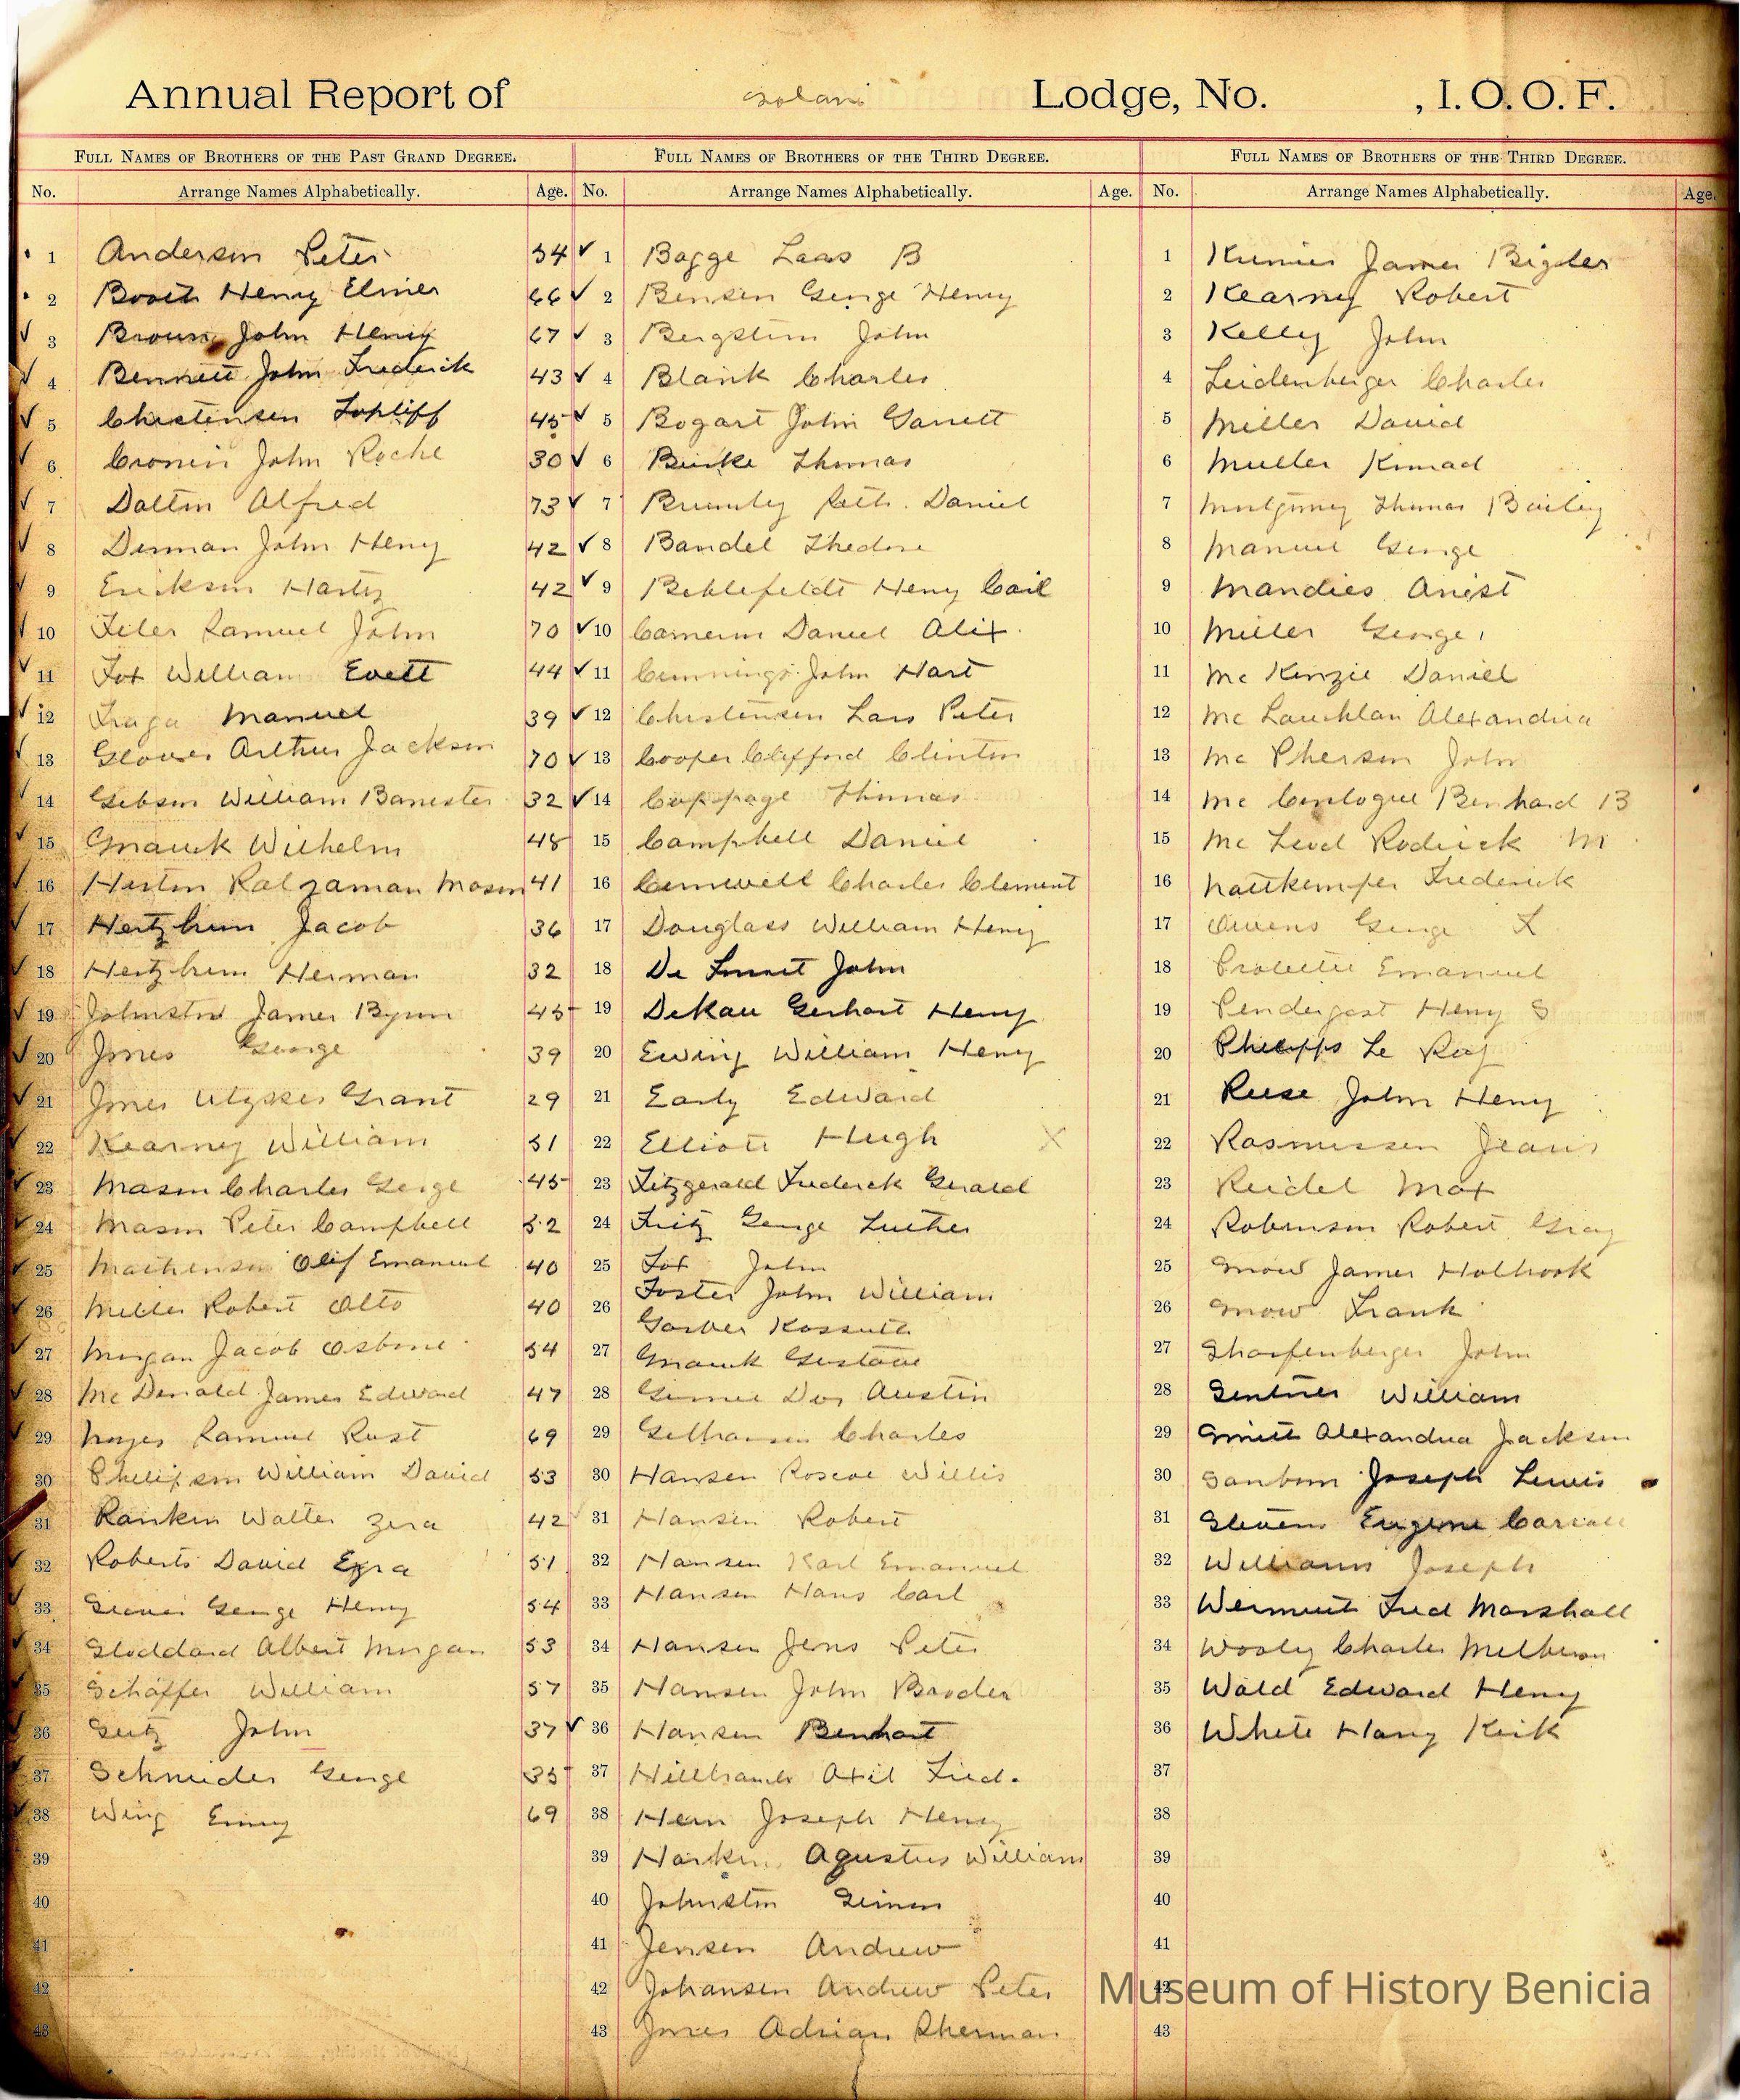 Annual Report of Solano Lodge, No. , I. O. O. F.
Full Names of Brothers of the Past Grand Degree.
No. Arrange Names Alphabetically. Age.
1 Anderson Peter 34
2 Booth Henry Elmer 66
3 Brown John Henry 67
4 Bennett John Frederick 43
5 Christensen Topliff 45
6 Cronin John Roche 30
7 Dalton Alfred 73
8 Denman John Henry 42
9 Erickson 42
10 Samuel John 70
11 Fox William Evett 44
12 Fraga Manuel 39
13 Glover Arthur Jackson 70
14 Gibson William Banester 32
15 Gnauck Wilhelm 48
16 Mason 41
17 Jacob 36
18 Herman 32
19 James 45
20 Jones George 39
21 Jones Ulysses Grant 29
22 Kearney William 51
23 Mason Charles George 45
24 Mason Peter Campbell 52
25 Olif Emanuel 40
26 Miller Robert Otto 40
27 Morgan Jacob Osborne 54
28 Mc Donald James Edward 47
29 Noyes Samuel Rust 69
30 William David 53
31 Rankin Walter Zera 42
32 Roberts David Ezra 51
33 George Henry 54
34 Stoddard Albert Morgan 53
35 Schaffer William 57
36 Seitz John 37
37 Schneider George 35
38 Wing 69
39
40
41
42
43
Full Names of Brothers of the Third Degree.
No. Arrange Names Alphabetically. Age.
1 Bagge Laas B
2 Bensen George Henry
3 Bergstrom John
4 Blank Charles
5 Bogart John Garrett
6 Burke Thomas
7 Brumley Seth. Daniel
8 Bandel Thedore
9 Henry Carl
10 Cameron Daniel Alix
11 Cummings John Hart
12 Christensen Lars Peter
13 Cooper Clifford Clinton
14 Thomas
15 Campbell Daniel
16 Charles Clement
17 Douglass William Henry
18 De Smet John
19 DeKau Gerhart Henry
20 Ewing William Henry
21 Early Edward
22 Elliott Hugh X
23 Fitzgerald Frederick Gerald
24 Fritz George Luther
25 Fox John
26 Foster John William
Garber Kossuth
27 Gnauck Gustave
28 Austin
29 Charles
30 Hansen Roscoe Willis
31 Hansen Robert
32 Hansen Karl Emanuel
33 Hansen Hans Carl
34 Hansen Jens Peter
35 Hansen John
36 Hansen Benhart
37 Axil Fred.
38 Hein Joseph Henry
39 Agustus William
40 Johnston Simon
41 Jensen Andrew
42 Johansen Andrew Peter
43 Jones Adrian Sherman
Full Names of Brothers of the Third Degree.
No. Arrange Names Alphabetically. Age.
1 James Bigler
2 Kearney Robert
3 Kelly John
4 Leidenberger Charles
5 Miller David
6 Muller Konrad
7 Montgomery Thomas Bailey
8 Manuel George
9 Mandies
10 Miller George
11 Mc Kenzie Daniel
12 Mc Lauchlan Alexandria
13 Mc Pherson John
14 Mc Conlogue Bernhard B
15 Mc Leod Rodrick M
16 Nattkemper Frederick
17 Owens George L
18 Emanuel
19 Pendergast Henry S
20 Phillipps Le Roy
21 Reese John Henry
22 Rasmussen Jeans
23 Reidel Max
24 Robinson Robert Gray
25 Snow James Holbrook
26 Snow Frank
27 Sharfenberger John
28 William
29 Smith Alexandria Jackson
30 Sanborn Joseph Lewis
31 Stevens Eugene
32 Williams Joseph
33 Wermuth Fred Marshall
34 Wooley Charles
35 Wold Edward Henry
36 White Harry Kirk
37
38
39
40
41
42
43
Museum of History Benicia